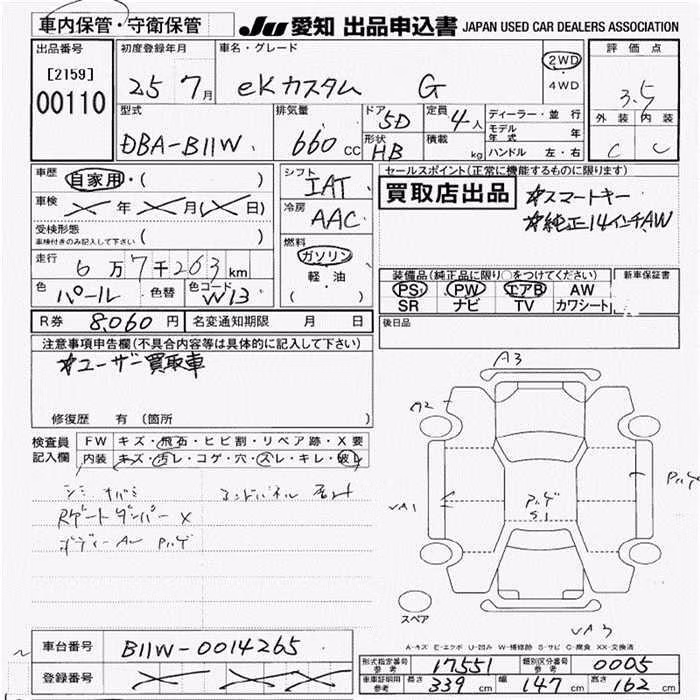 車内保管・守衛保管
JU 愛知 出品申込書 JAPAN USED CAR DEALERS ASSOCIATION
出品番号
[2159]
00110
初度登録年月
25 7月
車名・グレード
eKカスタム G
2WD
・
4WD
評価点
3.5
外装 内装
C C
型式
DBA-B11W
排気量
660 cc
ドア 5D
形状 HB
定員 4人
積載 kg
ディーラー・並行
モデル年式 年
ハンドル 左・右
車歴
自家用・( )
車検
年 月( 日)
受検形態
車検付きのみ記入して下さい ( )
走行
6万7千263km
色 パール 色替 色コード W13
シフト
IAT
冷房
AAC
燃料
ガソリン
・
軽・油
( )
セールスポイント(正常に機能するものに限ります)
買取店出品
☆スマートキー
☆純正14インチAW
装備品(純正品に限り○をつけてください)
PS PW エアB AW
SR ナビ TV カワシート
新車保証書
R券 8,060円 名変通知期限 月 日
後日品
注意事項申告欄(不具合内容等は具体的に記入して下さい)
☆ユーザー買取車
修復歴 有(箇所 )
検査員
記入欄
FW キズ・飛石・ヒビ割・リペア跡・X要
内装 キズ・汚レ・コゲ・穴・スレ・キレ・破レ
シミ
Rゲートダンパー X
A3
A2
VA1
S1
VA3
スペア
A-キズ E-エクボ U-凹み W-補修跡 S-サビ C-腐食 XX-交換済
車台番号 B11W-0014265
登録番号
形式指定番号 参考 17551 類別区分番号 参考 0005
車庫証明用 参考 長さ 339cm 幅 147cm 高さ 162cm